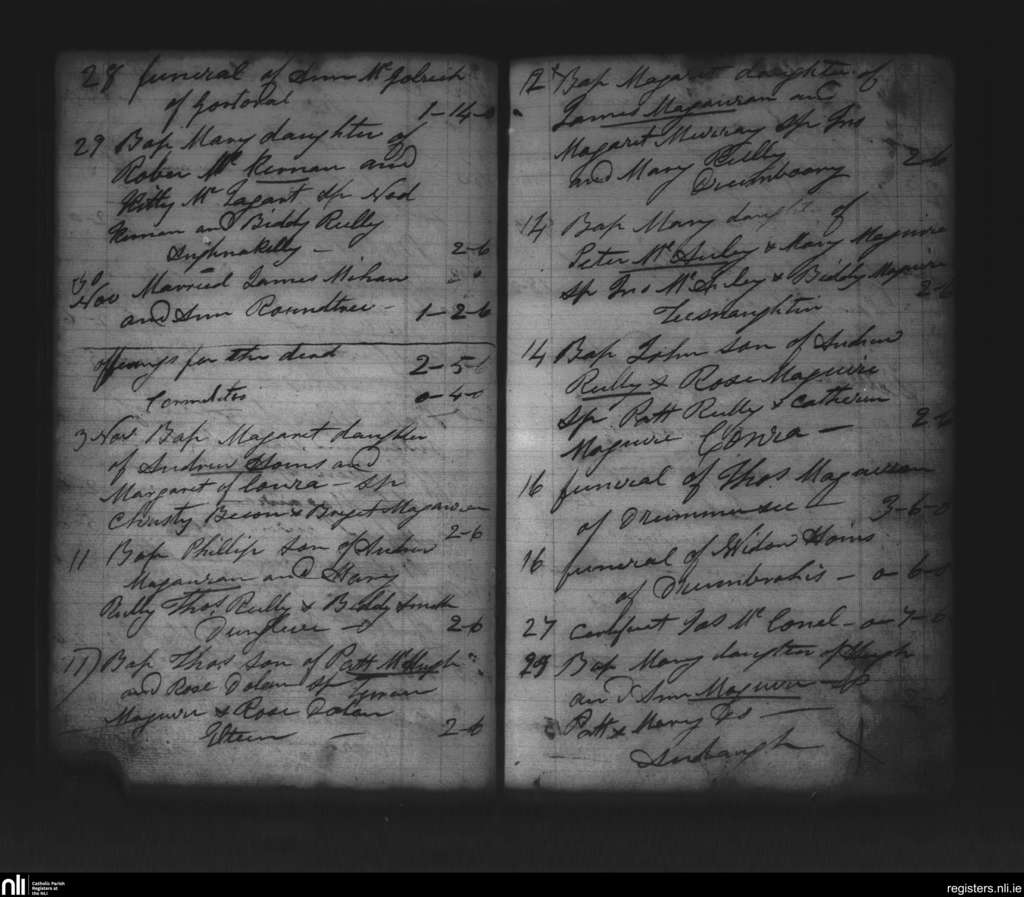 28 funeral of Ann Mc Golrich
of Gortoral 1-14-0
29 Bap Mary daughter of
Rober Mc Kernan and
Kitty Mc Tagart Sp Ned
Kernan and Biddy Reilly
2-6
30
Nov Married James Mihan
and Ann Roundtree - 1-2-6
offerings for the dead 2-5-6
0-4-0
3 Nov Bap Magaret daughter
of Andrew Hoins and
Margaret of Cowra - Sp
Christy Becon & Briget Magauran
2-6
11 Bap Phillip son of Andrew
Magauran and Mary
Reilly Thos Reilly & Biddy Smith
2-6
11) Bap Thos son of Patt McHugh
and Rose Dolan Sp
Maguire & Rose Dolan
2-6
12 Bap Magaret daughter of
James Magauran and
Magaret Murray Sp Jno
and Mary Reilly 2-6
Drumboory
14 Bap Mary daught of
Peter Mc Auley & Mary Maguire
Sp Jno McAuley & Biddy Maguire
2-6
14 Bap John son of Andrew
Reilly & Rose Maguire
Sp Patt Reilly & Catherin
Maguire Conra - 2-6
16 funeral of Thos Magauran
of 3-6-0
16 funeral of Widow Hoins
of - 0-6-0
27 Jas Mc Conel - 0-7-6
29 Bap Mary daughter of Hugh
and Ann Maguire Sp
Patt & Mary do -
nli
Catholic Parish
Registers at
the NLI
registers.nli.ie